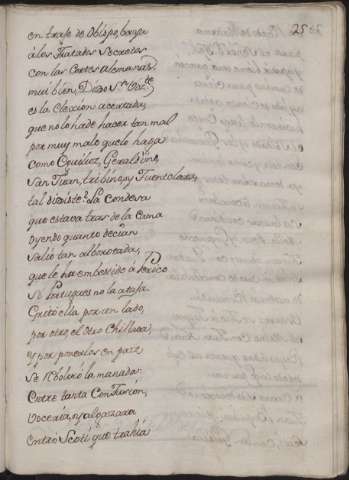 25
en traje de Obispo, baya
a los Tratados Secretos
con las Cortes Alemanas
mui bien, Dixo
es la eleccion acertada,
que no lo hade hacer tan mal
por muy malo que lo haga
como Geraldino,
San Juan, y Fuenclara,
tal dixiste? La Condesa
que estava tras de la Cama
oyendo quanto decian
salio tan alborotada,
que le ha embestido à Perico
Si Portugues no la ataja.
Gritò ella por un lado,
por otro, el otro chillava,
y por ponerlos en paz
se rebolviò la manada.
Entre tanta Confusion,
Voceria, y algazara
entrò Scoti que trahia